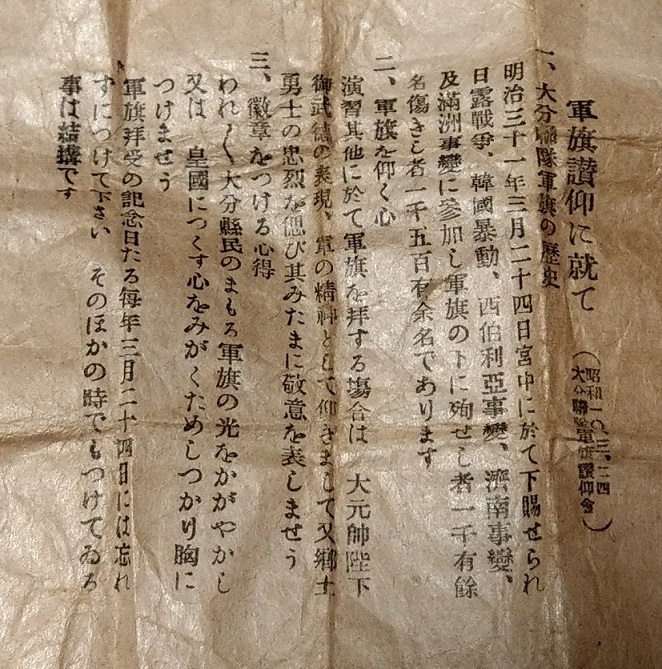 軍旗讃仰に就て
(昭和一〇、三、二四
大分聯隊軍旗讃仰会)
一、大分聯隊軍旗の歴史
明治三十一年三月二十四日宮中に於て下賜せられ
日露戰爭、韓國暴動、西伯利亞事變、濟南事變、
及滿洲事變に參加し軍旗の下に殉せし者一千有餘
名傷きし者一千五百有余名であります
二、軍旗を仰く心
演習其他に於て軍旗を拜する場合は 大元帥陛下
御武德の表現、軍の精神として仰きまして又鄕土
勇士の忠烈を偲び其みたまに敬意を表しませう
三、徽章をつける心得
われ〳〵大分縣民のまもる軍旗の光をかがやかし
又は 皇國につくす心をみがくためしつかり胸に
つけませう
軍旗拜受の記念日たる每年三月二十四日には忘れ
すにつけて下さい そのほかの時でもつけてゐる
事は結搆です